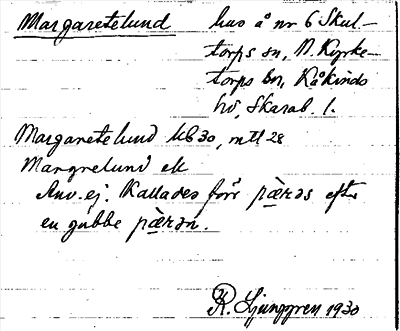 Margaretelund hus å nr 6 Skul-
torps sn, N. Kyrke-
torps bn, Kåkinds
hd, Skarab. l.
Margaretelund kb 30, mtl 28
Margrelund ek
Anv. ej. Kallades förr pæ̀ras efter
en gubbe pæ̀ran.
R. Ljunggren 1930